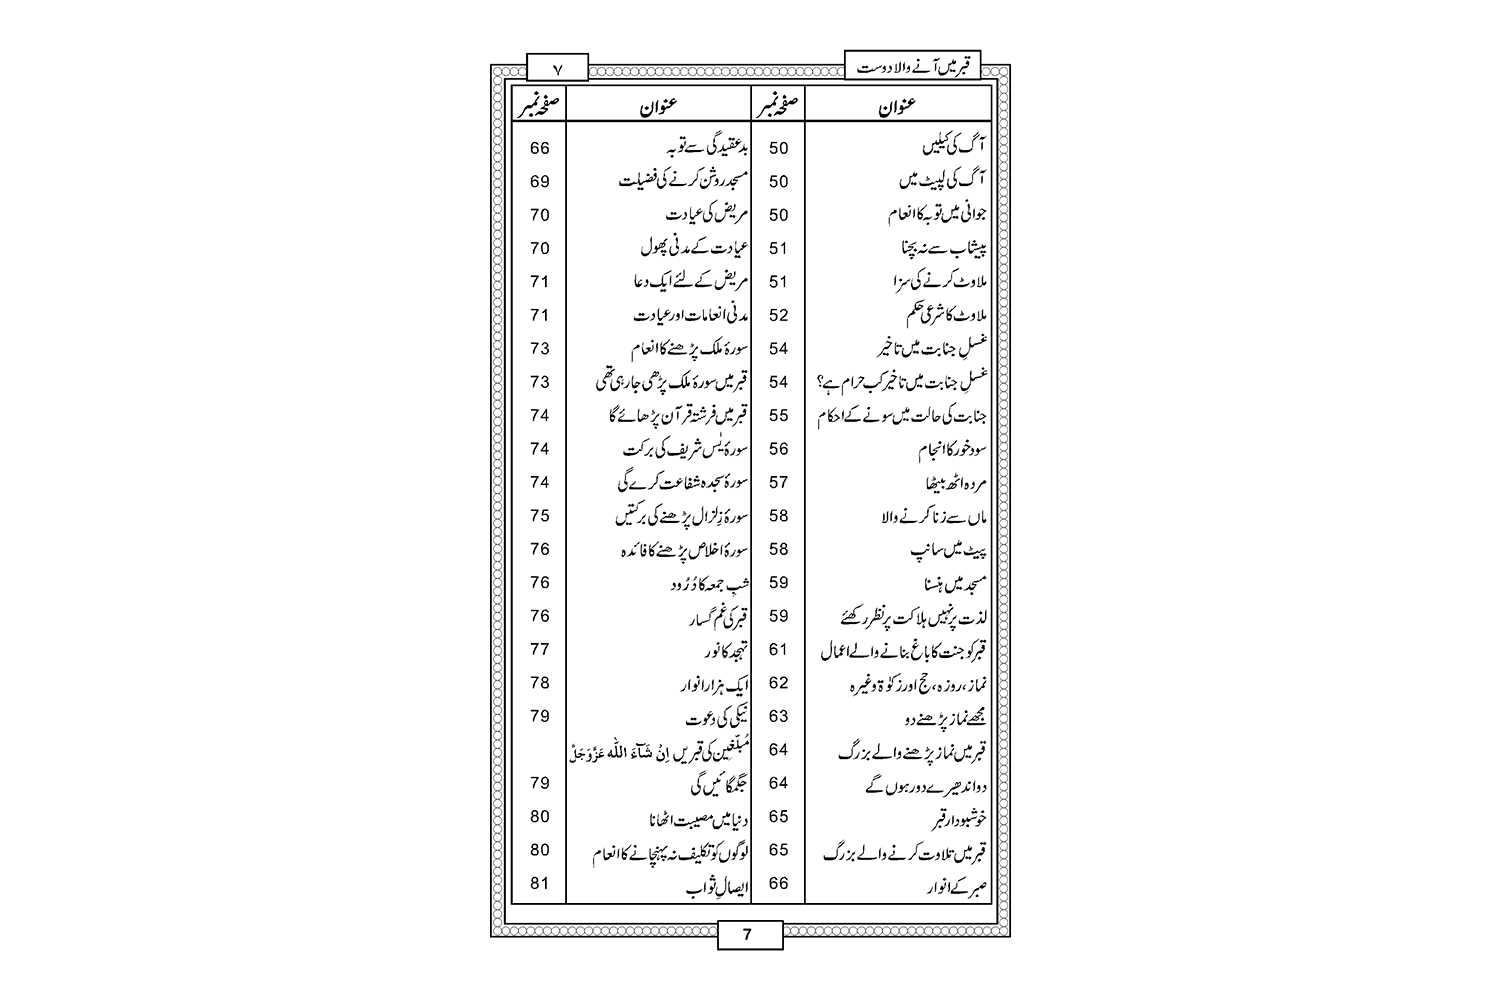 قبر میں آنے والا دوست
۷
عنوان صفحہ نمبر عنوان صفحہ نمبر
آگ کی کیلیں 50
آگ کی لپیٹ میں 50
جوانی میں توبہ کا انعام 50
پیشاب سے نہ بچنا 51
ملاوٹ کرنے کی سزا 51
ملاوٹ کا شرعی حکم 52
غسلِ جنابت میں تاخیر 54
غسلِ جنابت میں تاخیر کب حرام ہے؟ 54
جنابت کی حالت میں سونے کے احکام 55
سود خور کا انجام 56
مردہ اٹھ بیٹھا 57
ماں سے زنا کرنے والا 58
پیٹ میں سانپ 58
مسجد میں ہنسنا 59
لذت پر نہیں ہلاکت پر نظر رکھئے 59
قبر کو جنت کا باغ بنانے والے اعمال 61
نماز، روزہ، حج اور زکوٰۃ وغیرہ 62
مجھے نماز پڑھنے دو 63
قبر میں نماز پڑھنے والے بزرگ 64
دو اندھیرے دور ہوں گے 64
خوشبودار قبر 65
قبر میں تلاوت کرنے والے بزرگ 65
صبر کے انوار 66
بد عقیدگی سے توبہ 66
مسجد روشن کرنے کی فضیلت 69
مریض کی عیادت 70
عیادت کے مدنی پھول 70
مریض کے لئے ایک دعا 71
مدنی انعامات اور عیادت 71
سورۂ ملک پڑھنے کا انعام 73
قبر میں سورۂ ملک پڑھی جا رہی تھی 73
قبر میں فرشتہ قرآن پڑھائے گا 74
سورۂ یٰس شریف کی برکت 74
سورۂ سجدہ شفاعت کرے گی 74
سورۂ زِلزال پڑھنے کی برکتیں 75
سورۂ اخلاص پڑھنے کا فائدہ 76
شبِ جمعہ کا دُرُود 76
قبر کی غم گسار 76
تہجد کا نور 77
ایک ہزار انوار 78
نیکی کی دعوت 79
مُبلّغین کی قبریں اِنْ شَآءَ اللّٰه عَزَّوَجَلَّ
جگمگائیں گی 79
دنیا میں مصیبت اٹھانا 80
لوگوں کو تکلیف نہ پہنچانے کا انعام 80
ایصالِ ثواب 81
7